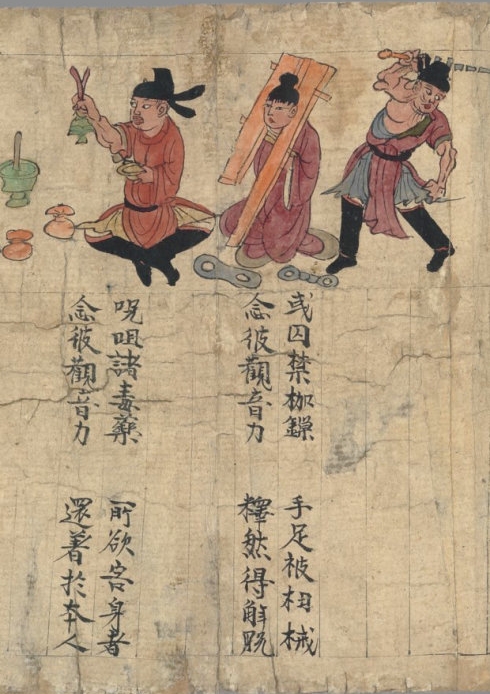 或囚禁枷鏁 手足被杻械
念彼觀音力 釋然得觧脱
呪咀諸毒藥 所欲害身者
念彼觀音力 還著扵夲人